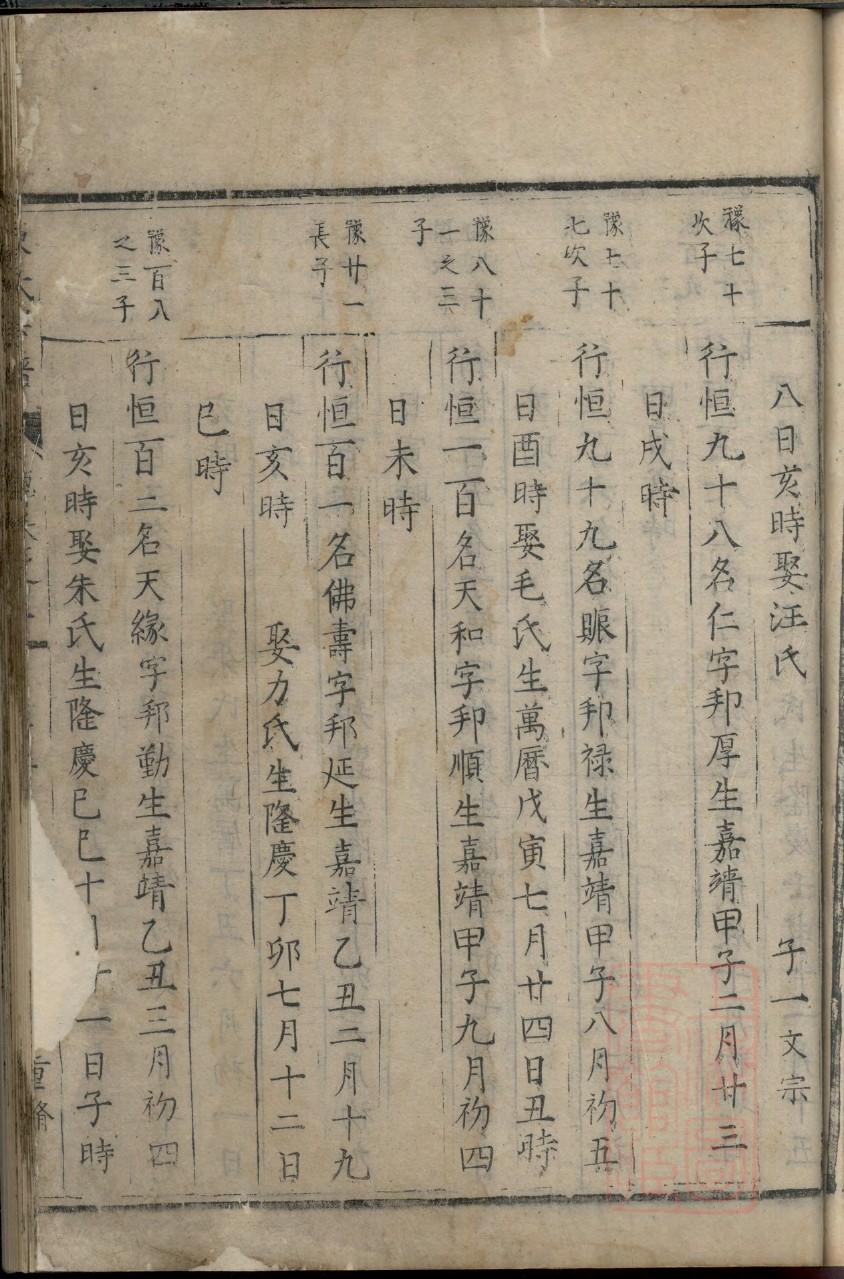 八日亥時娶汪氏 子一文宗
豫七十
次子
行恒九十八名仁字邦厚生嘉靖甲子二月廿三
日戌時
豫七十
七次子
行恒九十九名賑字邦禄生嘉靖甲子八月初五
日酉時娶毛氏生萬曆戊寅七月廿四日丑時
豫八十
一之三
子
行恒一百名天和字邦順生嘉靖甲子九月初四
日未時
豫廿一
長子
行恒百一名佛壽字邦延生嘉靖乙丑二月十九
日亥時 娶方氏生隆慶丁卯七月十二日
巳時
豫百八
之三子
行恒百二名天緣字邦勤生嘉靖乙丑三月初四
日亥時娶朱氏生隆慶己巳十月十一日子時
重脩